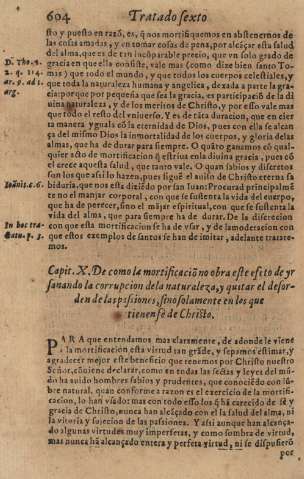 604 Tratado sexto
sto y puesto en razõ, es, q̃ nos mortifiquemos en abstenernos de
las cosas amadas, y en tomar cosas de pena, por alcãçar esta salud
del alma, que es de tan incõparable precio, que vn solo grado de
gracia en que ella consiste, vale mas (como dize bien santo To-
mas) que todo el mundo, y que todos los cuerpos celestiales, y
que toda la naturaleza humana y angelica, dexada a parte la gra-
cia: porque por pequeña que sea la gracia, es participaciõ de la di
uina naturaleza, y de los meritos de Christo, y por esso vale mas
que todo el resto del vniuerso. Y es de tãta duracion, que en cier
ta manera yguala cõ la eternidad de Dios, pues con ella se alcan
ça del mismo Dios la inmortalidad de los cuerpos, y gloria de las
almas, que ha de durar para siempre. O quãto ganamos cõ qual-
quier acto de mortificacion q̃ resucita esta diuina gracia, pues cõ
el crece aquesta salud, que tanto vale. O quan sabios y discretos
son los que assi lo hazen, pues siguẽ el auiso de Christo eterna sa
biduria, que nos esta diziẽdo por san Iuan: Procurad principalmẽ
te no el manjar corporal, con que se sustenta la vida del cuerpo,
que ha de perecer, sino el mãjar espiritual, con que se sustenta la
vida del alma, que para siempre ha de durar. De la discrecion
con que esta mortificacion se ha de vsar, y de la moderacion con
que estos exemplos de santos se han de imitar, adelante tratare-
mos.
D. Tho. 1.
2. q. 114.
ar. 9. ad 1.
arg.
Ioãnis. c. 6.
In hoc tra-
Capit. X. De como la mortificaciõ no obra este efeto de yr
sanando la corrupcion de la naturaleza, y quitar el desor-
den de las passiones, sino solamente en los que
tienen fè de Christo.
PARA que entendamos mas claramente, de adonde le viene
a la mortificacion esta virtud tan grãde, y sepamos estimar, y
agradecer mejor este beneficio que tenemos por Christo nuestro
Señor, cõuiene declarar, como en todas las sectas y leyes del mũ-
do ha auido hombres sabios y prudentes, que conociẽdo con lũ-
bre natural, quan conforme a razon es el exercicio de la mortifi-
cacion, lo han vsado: mas con todo esso los q̃ hã carecido de fè y
gracia de Christo, nunca han alcãçado con el la salud del alma, ni
la vitoria y sujecion de las passiones. Y assi aunque han alcança-
do algunas virtudes muy imperfetas, y como sombra de virtud,
mas nunca hã alcançado entera y perfeta virtud, ni se dispusierõ
por